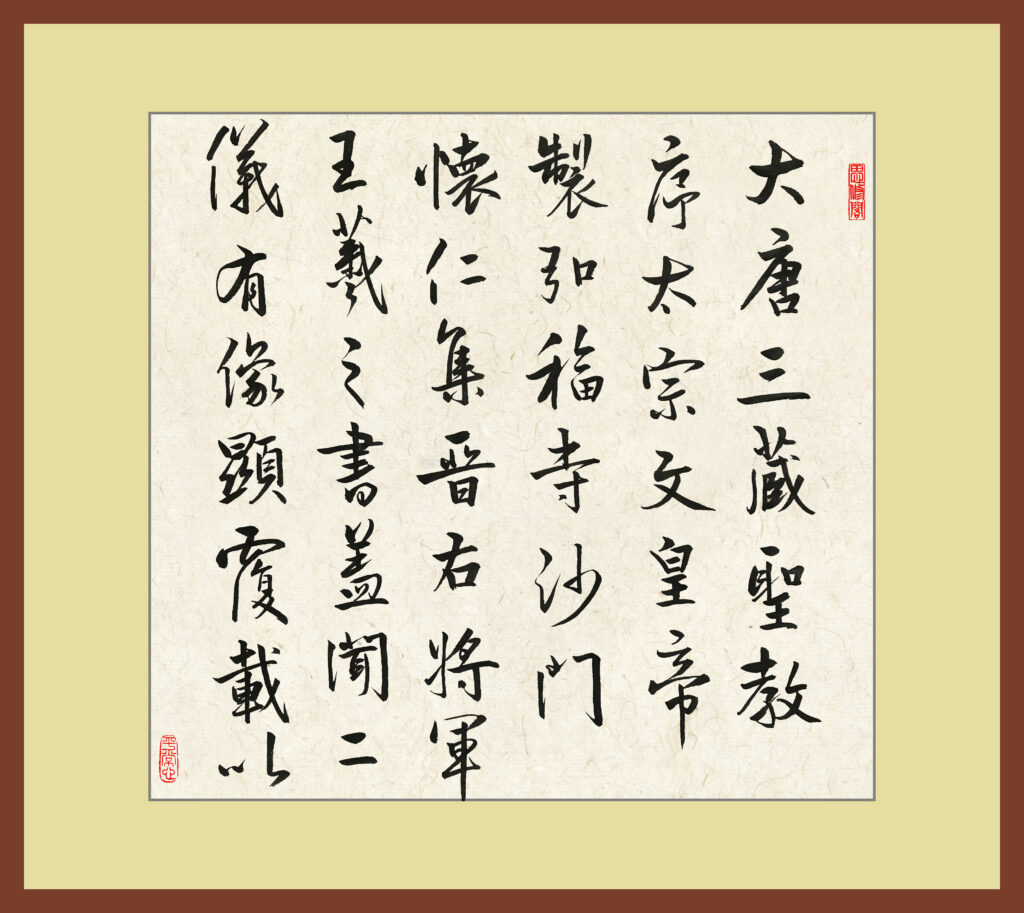 大唐三藏聖教
序太宗文皇帝
製弘福寺沙門
懷仁集晋右將軍
王羲之書盖聞二
儀有像顯覆載以
平常心